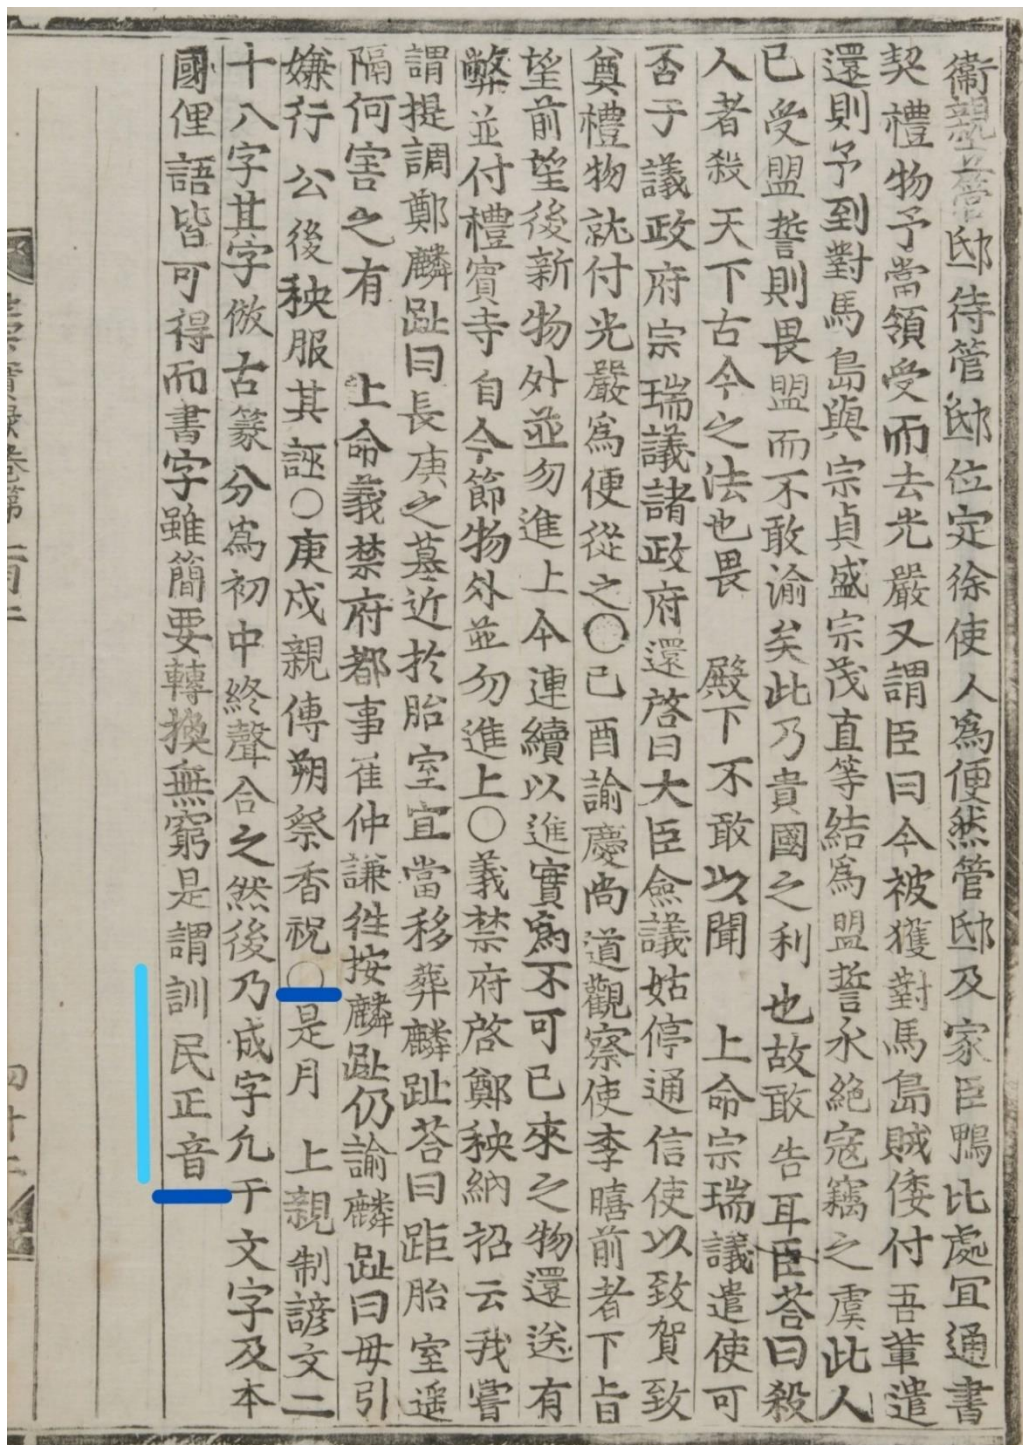 衞親立管邸待管邸位定徐使人爲便然管邸及家臣鴨比處宜通書
契禮物予當領受而去光嚴又謂臣曰今被獲對馬島賊倭付吾輩遣
還則予到對馬島與宗貞盛宗茂直等結爲盟誓永絶寇竊之虞此人
已受盟誓則畏盟而不敢渝矣此乃貴國之利也故敢告耳臣荅曰殺
人者殺天下古今之法也畏 殿下不敢以聞 上命宗瑞議遣使可
否于議政府宗瑞議諸政府還啓曰大臣僉議姑停通信使以致賀致
奠禮物就付光嚴爲便從之○己酉諭慶尚道觀察使李暿前者下旨
望前望後新物外並勿進上今連續以進實爲不可已來之物還送有
弊並付禮賓寺自今節物外並勿進上○義禁府啓鄭秧納招云我嘗
謂提調鄭麟趾曰長庚之墓近於胎室宜當移葬麟趾荅曰距胎室遥
隔何害之有 上命義禁府都事崔仲謙徃按麟趾仍諭麟趾曰毋引
嫌行公後秧服其誣○庚戍親傳朔祭香祝○是月 上親制諺文二
十八字其字倣古篆分爲初中終聲合之然後乃成字凢干文字及本
國俚語皆可得而書字雖簡要轉換無窮是謂訓民正音